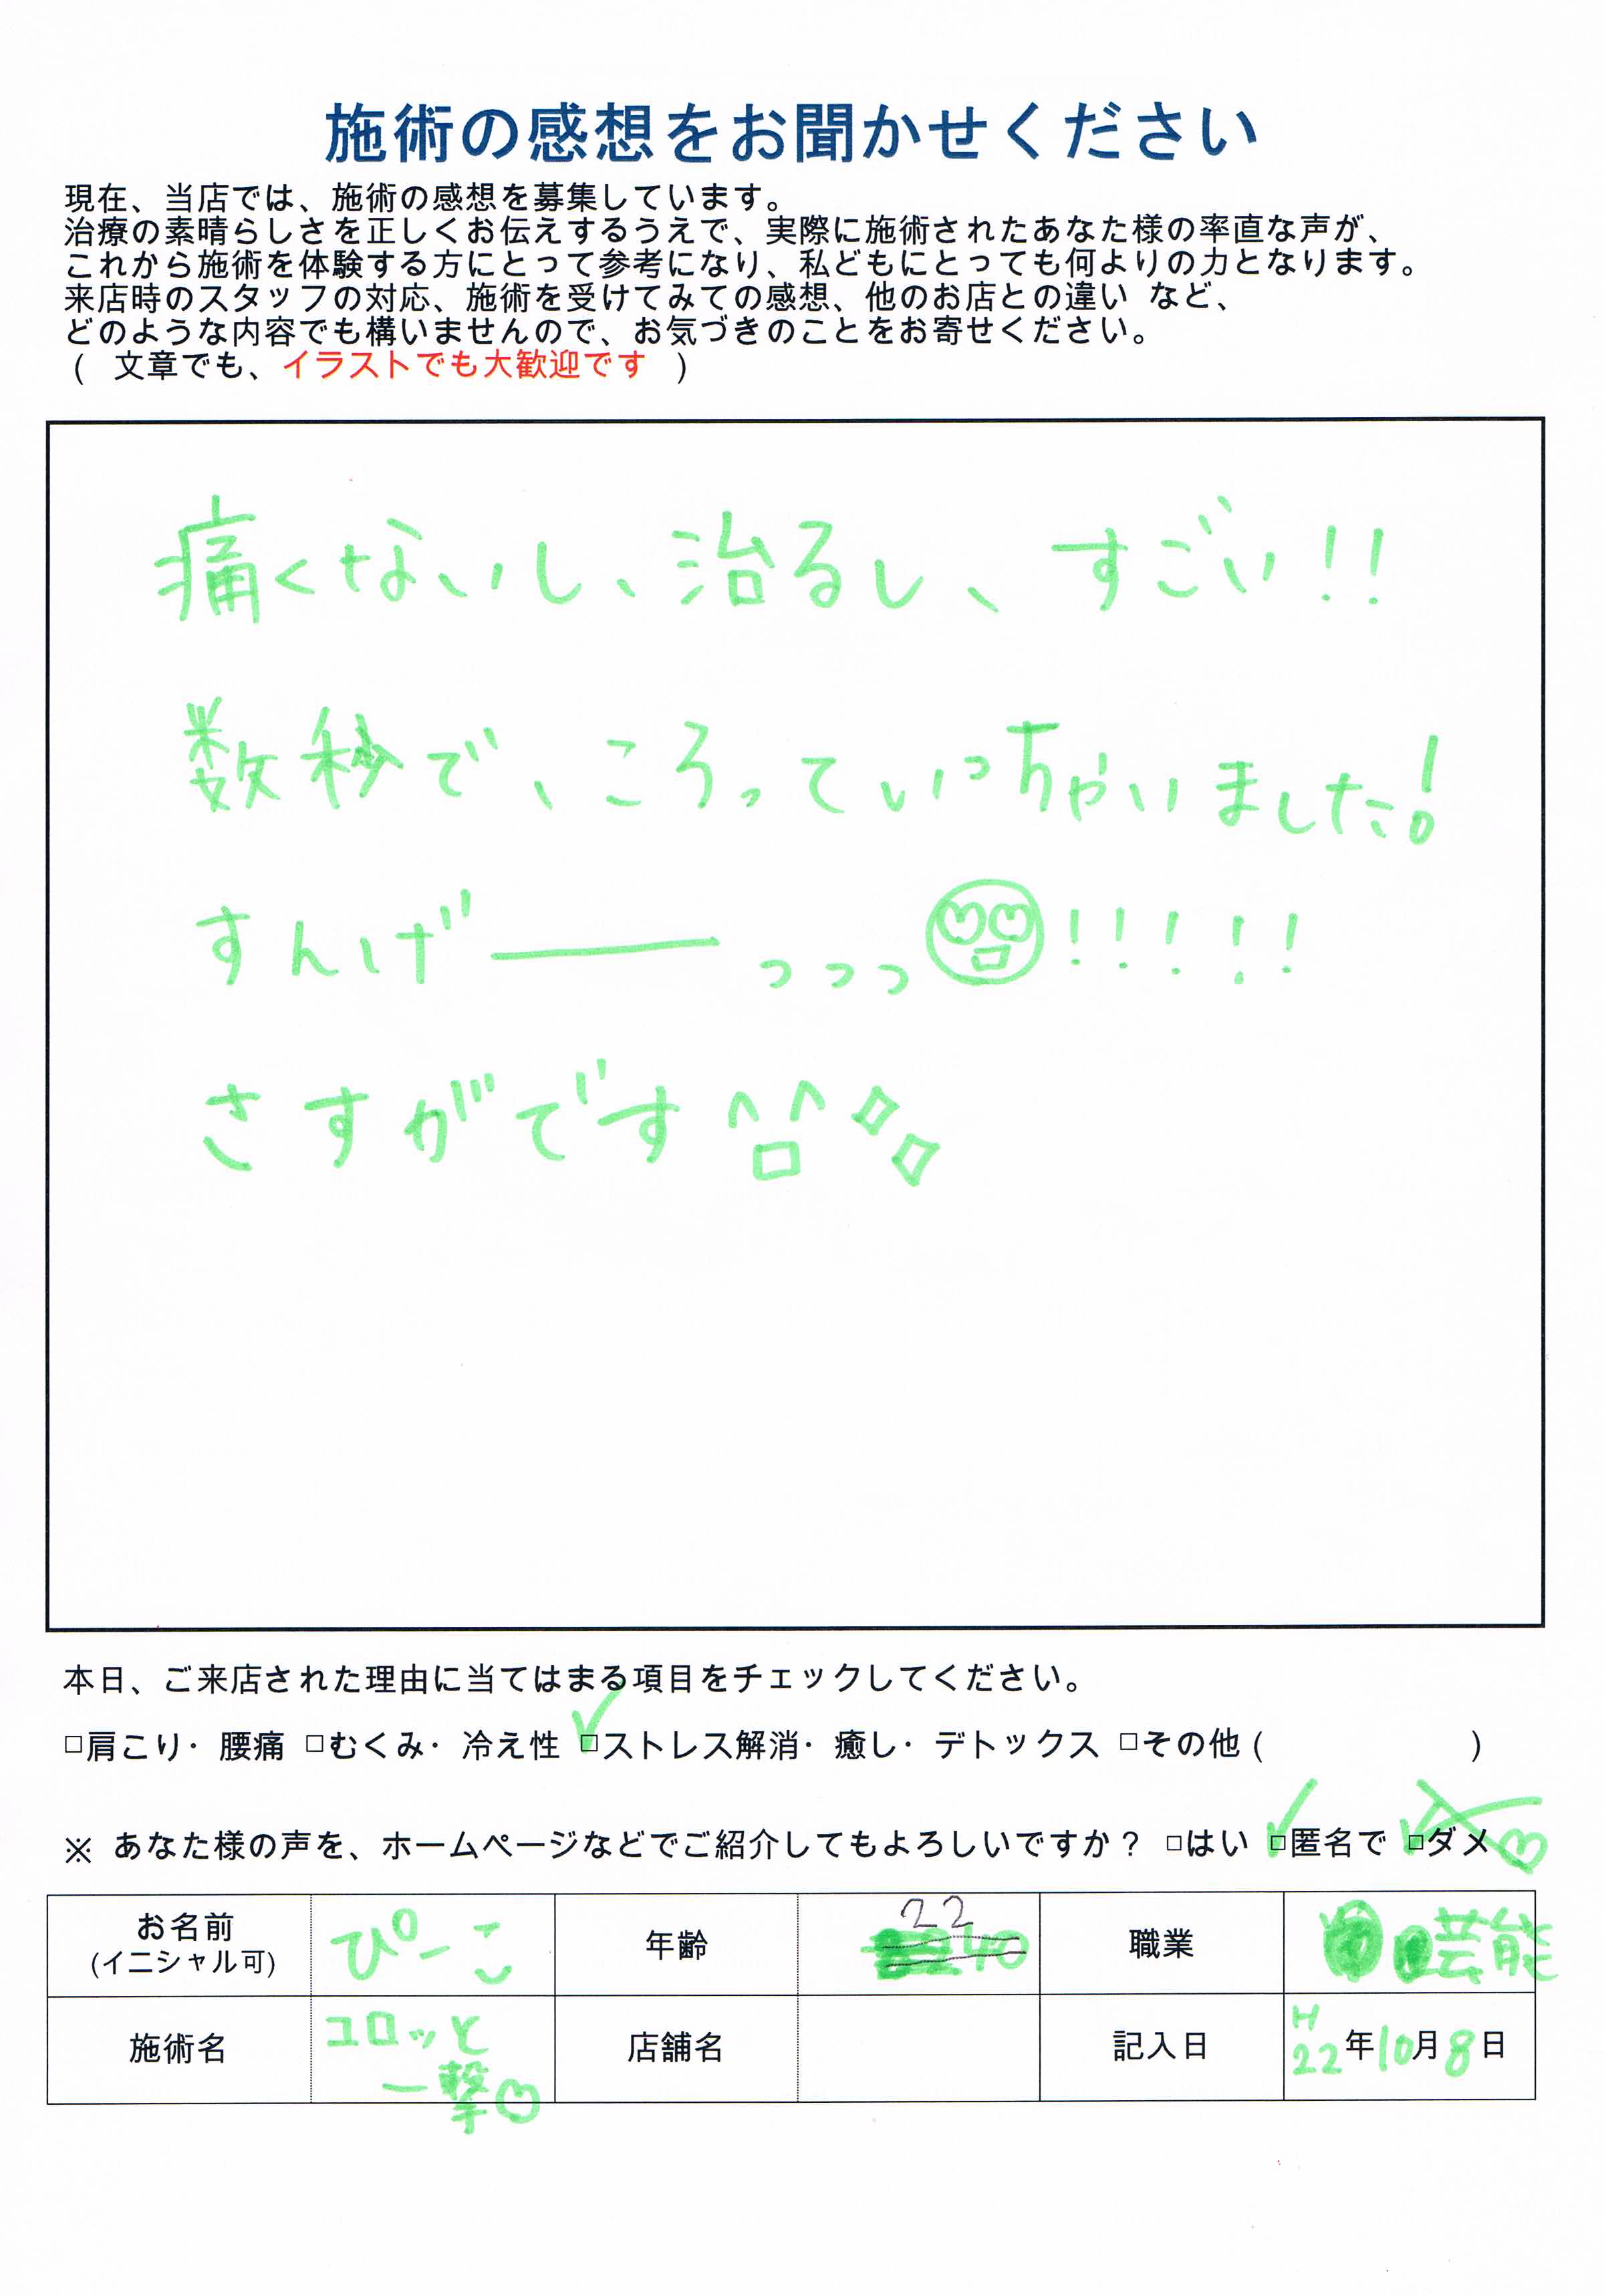 施術の感想をお聞かせください
現在、当店では、施術の感想を募集しています。
治療の素晴らしさを正しくお伝えするうえで、実際に施術されたあなた様の率直な声が、
これから施術を体験する方にとって参考になり、私どもにとっても何よりの力となります。
来店時のスタッフの対応、施術を受けてみての感想、他のお店との違い など、
どのような内容でも構いませんので、お気づきのことをお寄せください。
( 文章でも、イラストでも大歓迎です )
痛くないし、治るし、すごい!!
数秒で、ころっていっちゃいました!
すんげーっっっ!!!!!
さすがです
本日、ご来店された理由に当てはまる項目をチェックしてください。
□肩こり・腰痛 □むくみ・冷え性 □ストレス解消・癒し・デトックス □その他 ( )
※ あなた様の声を、ホームページなどでご紹介してもよろしいですか? □はい □匿名で □ダメ
お名前 (イニシャル可) ぴーこ 年齢 22 40 職業 芸能
施術名 コロッと一撃 店舗名 記入日 H22年10月8日